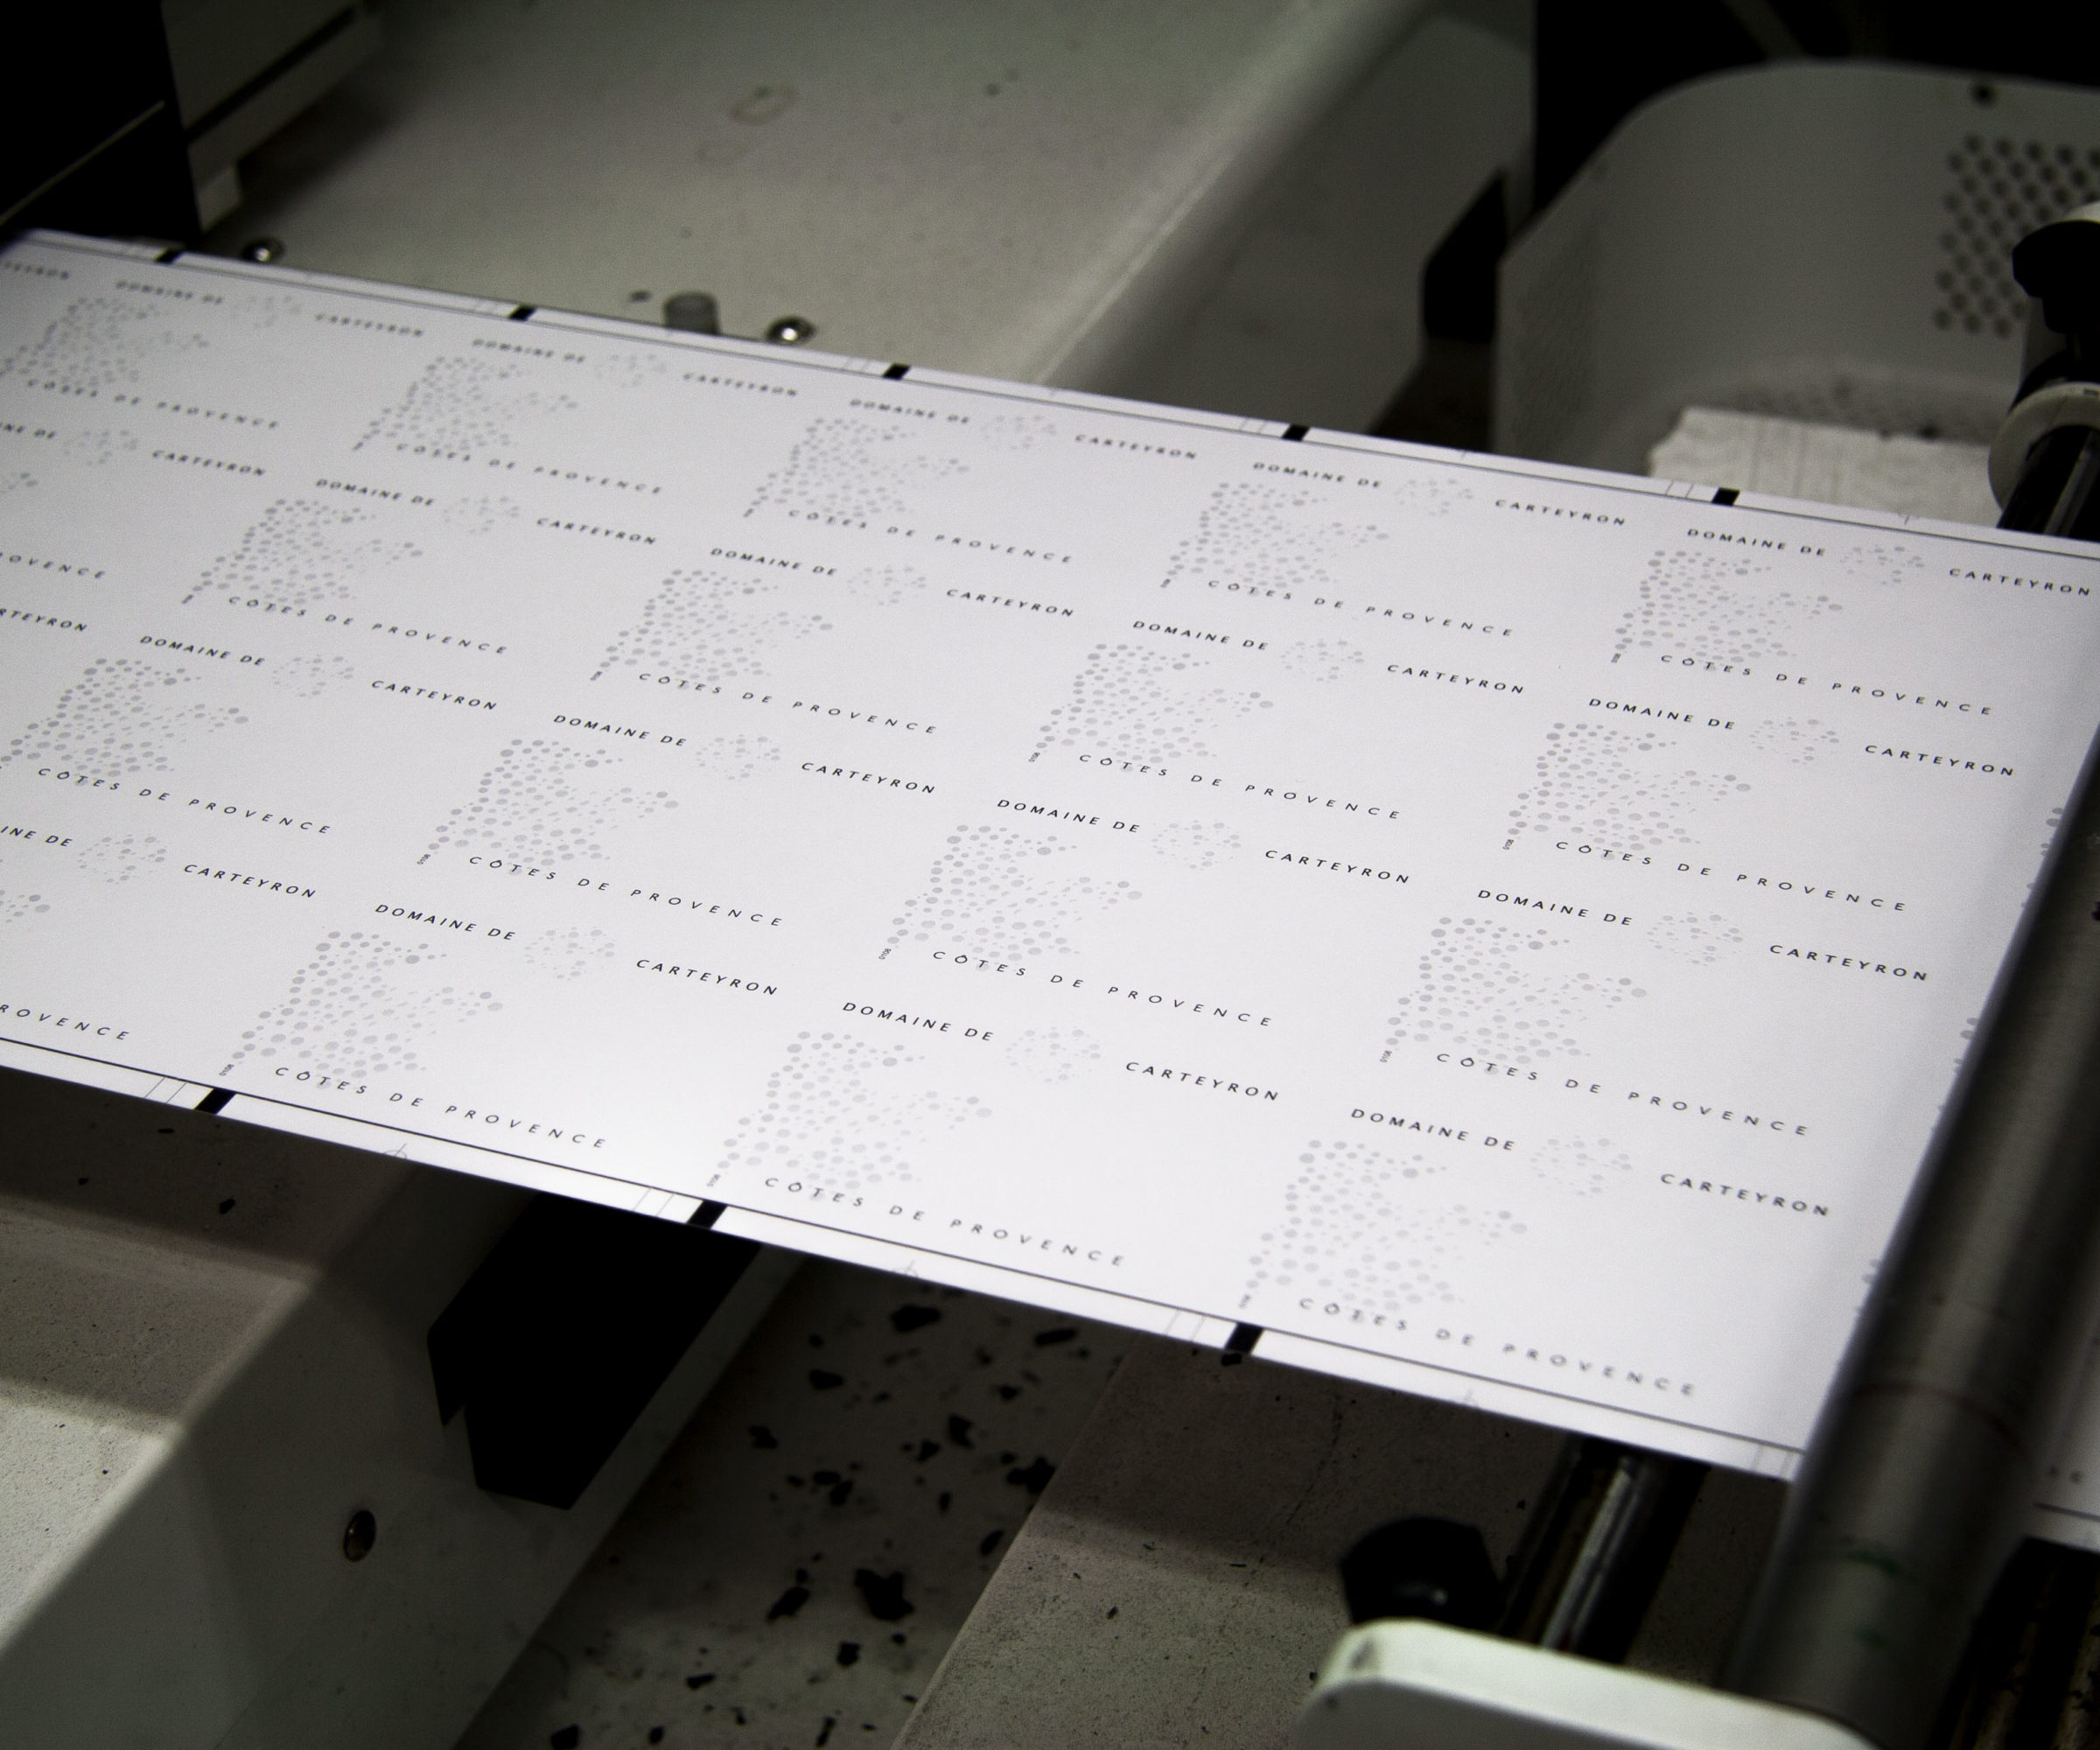 DOMAINE DE CARTEYRON DOMAINE DE CARTEYRON DOMAINE DE CARTEYRON DOMAINE DE CARTEYRON DOMAINE DE CARTEYRON
CÔTES DE PROVENCE CÔTES DE PROVENCE CÔTES DE PROVENCE CÔTES DE PROVENCE CÔTES DE PROVENCE
DE CARTEYRON DOMAINE DE CARTEYRON DOMAINE DE CARTEYRON DOMAINE DE CARTEYRON DOMAINE DE CARTEYRON
OVENCE CÔTES DE PROVENCE CÔTES DE PROVENCE CÔTES DE PROVENCE CÔTES DE PROVENCE
RTEYRON DOMAINE DE CARTEYRON DOMAINE DE CARTEYRON DOMAINE DE CARTEYRON DOMAINE DE CARTEYRON
CÔTES DE PROVENCE CÔTES DE PROVENCE CÔTES DE PROVENCE CÔTES DE PROVENCE
INE DE CARTEYRON DOMAINE DE CARTEYRON DOMAINE DE CARTEYRON DOMAINE DE CARTEYRON
ROVENCE CÔTES DE PROVENCE CÔTES DE PROVENCE CÔTES DE PROVENCE